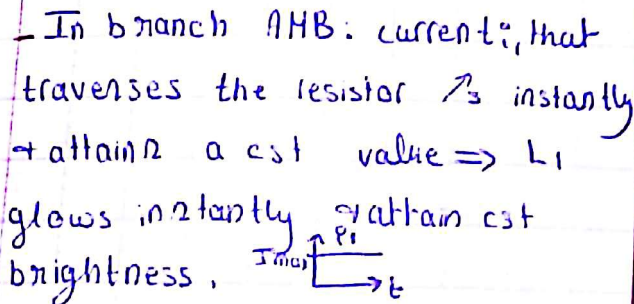 - In branch AMB: current i, that
traverses the resistor ↗s instantly
& attains a cst value => L1
glows instantly & attain cst
brightness.
Imax
i1
t